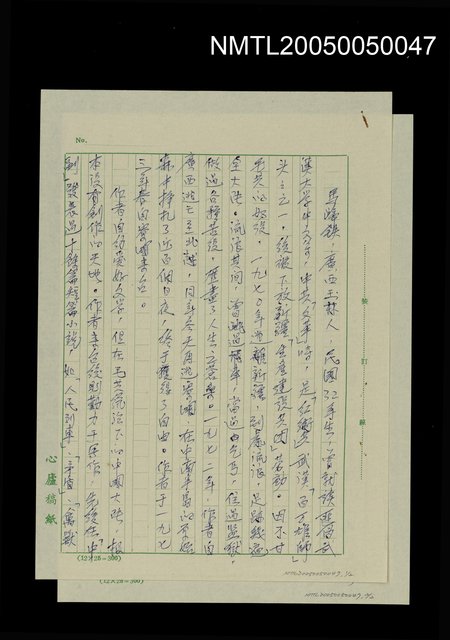 NMTL20050050047
No.
裝
訂
線
馬曉鎂，廣西玉林人，民國32年生，曾就讀
漢大學中文系，中共文革時，是「紅衛兵」武漢「百丁雄師」
頭之一，後被下放新疆「生產建設兵團」勞動。因不甘
共的奴役，一九七〇年逃離新疆，到處流浪，足跡幾遍
全大陸。流浪其間，當過，當過乞丐，住過監獄，
做過各種苦役，歷盡了人生之苦。一九七二年，作者由
廣西逃亡至北越，同年冬天再逃寮國，在中南半島的原始
森林中掙扎了近百個日夜，終于獲得了自由。作者于一九七
三年春由寮國來台。
作者自幼愛好文學，但在馬共統治下的中國大陸，根
本沒有創作的天地。作者來台後則勤力于寫作，先後在「中
副」發表過十餘篇短篇小說，如「人民列車」、「矛盾」、「
心廬稿紙
(12×25=300)
(12×25=300)
NMTL20050050047
NMTL20050050047